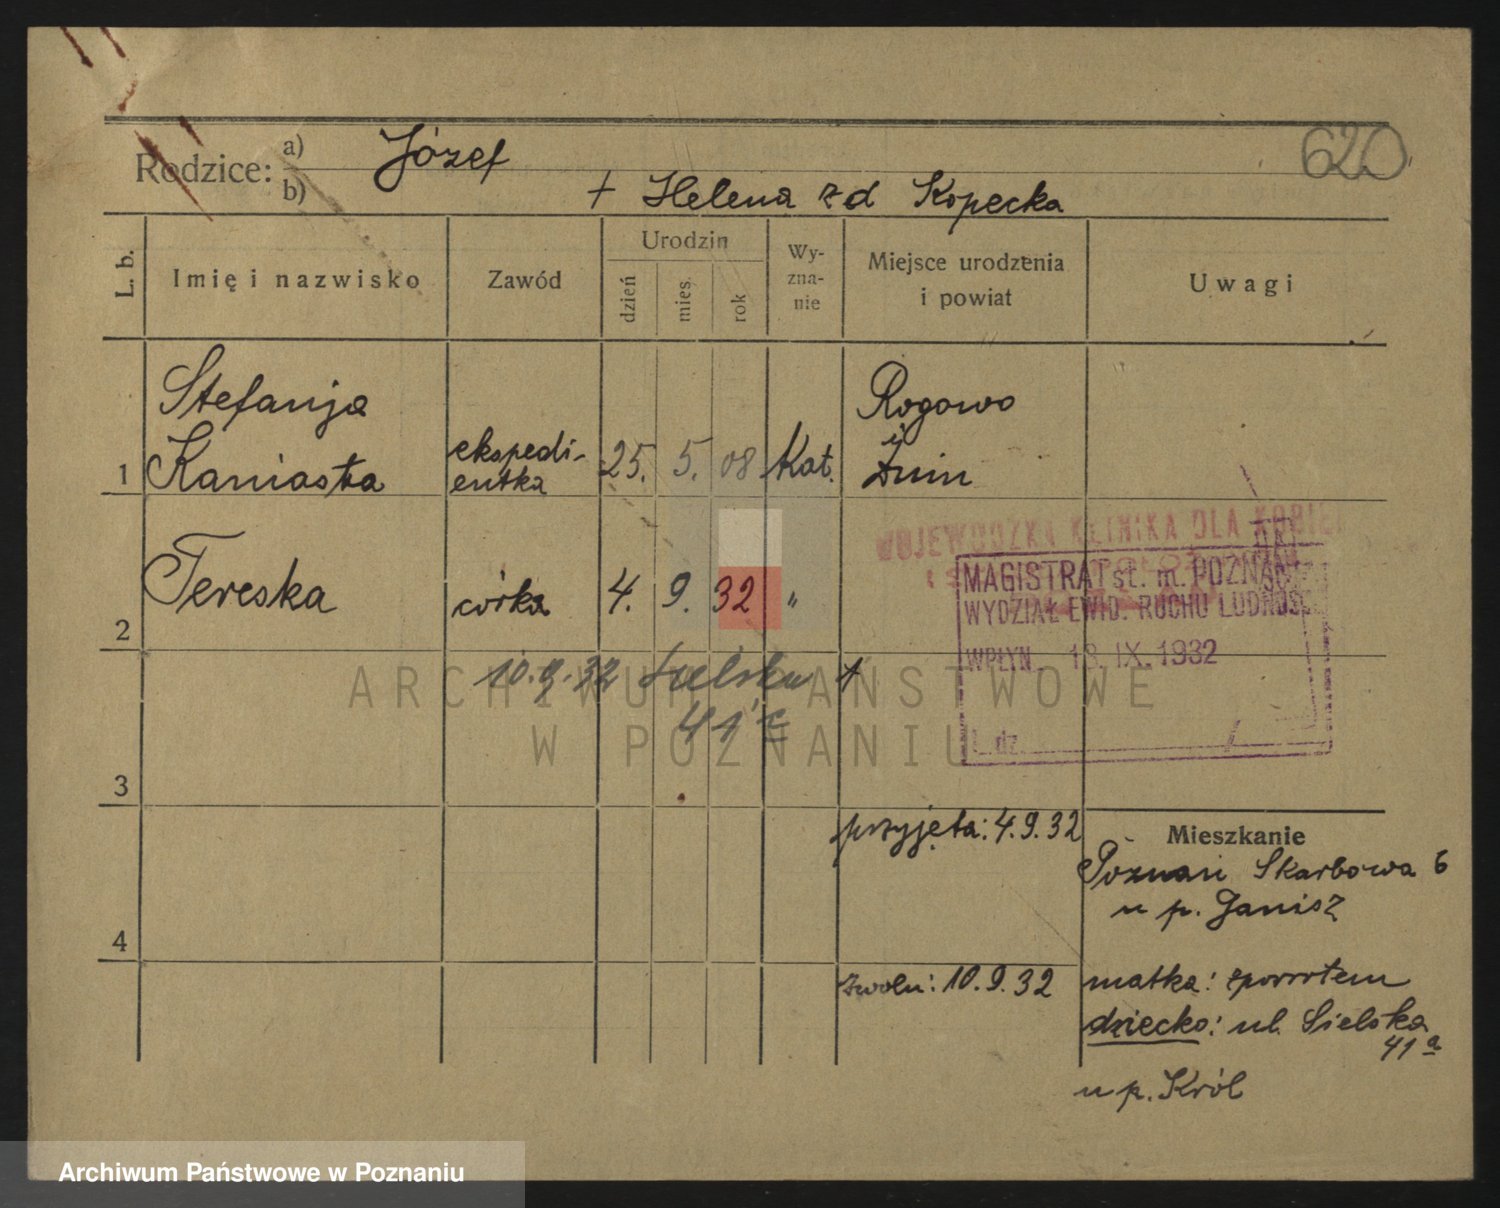 620
Rodzice: a) Józef
b) + Helena zd Kopecka
L. b.
Imię i nazwisko
Zawód
Urodzin
dzień
mies.
rok
Wy-
zna-
nie
Miejsce urodzenia
i powiat
Uwagi
Stefanja
1 Kaniasta
ekspedi-
entka
25. 5. 08
Kat.
Rogowo
Żnin
2 Tereska
córka
4. 9. 32 "
WOJEWÓDZKA KLINIKA DLA KOBIET
MAGISTRAT st. m. POZNANIA
WYDZIAŁ EWID. RUCHU LUDNOŚCI
WPŁYN. 13. IX. 1932
L. dz.
10.9.32 Sielska
41 a
3
przyjęta: 4.9.32
Mieszkanie
Poznań Skarbowa 6
u p. Janisz
4
zwoln: 10.9.32
matka: zpowrotem
dziecko: ul. Sielska
41 a
u p. Król
ARCHIWUM PAŃSTWOWE
W POZNANIU
Archiwum Państwowe w Poznaniu